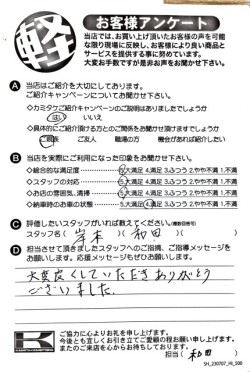 軽
お客様アンケート
当店では、お買い上げ頂いたお客様の声を可能
な限り現場に反映し、お客様により良い商品と
サービスを提供する事に努めています。
大変お手数ですが是非お声をお聞かせ下さい。
A 当店はご紹介を大切にしております。
ご紹介キャンペーンについてお聞かせ下さい。
◇カミタケご紹介キャンペーンのご説明はありましたでしょうか
はい いいえ
◇具体的にご紹介頂ける方とのご関係をお聞かせ頂けますでしょうか
ご親族 ご友人 職場の方 機会があれば紹介したい
B 当店を実際にご利用になった印象をお聞かせ下さい。
◇総合的な満足度 5.大満足 4.満足 3.ふつう 2.やや不満 1.不満
◇スタッフの対応 5.大満足 4.満足 3.ふつう 2.やや不満 1.不満
◇お店の雰囲気、清掃 5.大満足 4.満足 3.ふつう 2.やや不満 1.不満
◇納車時のお車の状態 5.大満足 4.満足 3.ふつう 2.やや不満 1.不満
C 評価したいスタッフがいれば教えてください。(複数回答可)
スタッフ名( 岸本 )( 和田 )
D 担当させて頂きましたスタッフへのご指摘、ご指導メッセージを
お願いします。応援メッセージもぜひお願いします。
大変良くしていただきありがとう
ございました。
ご協力に心よりお礼を申し上げます。
今後とも宜しくお引き立てご愛顧の程お願い申し上げます。
またのご来店を心からお待ちしております。
担当( 和田 )
SH_230707_HI_500